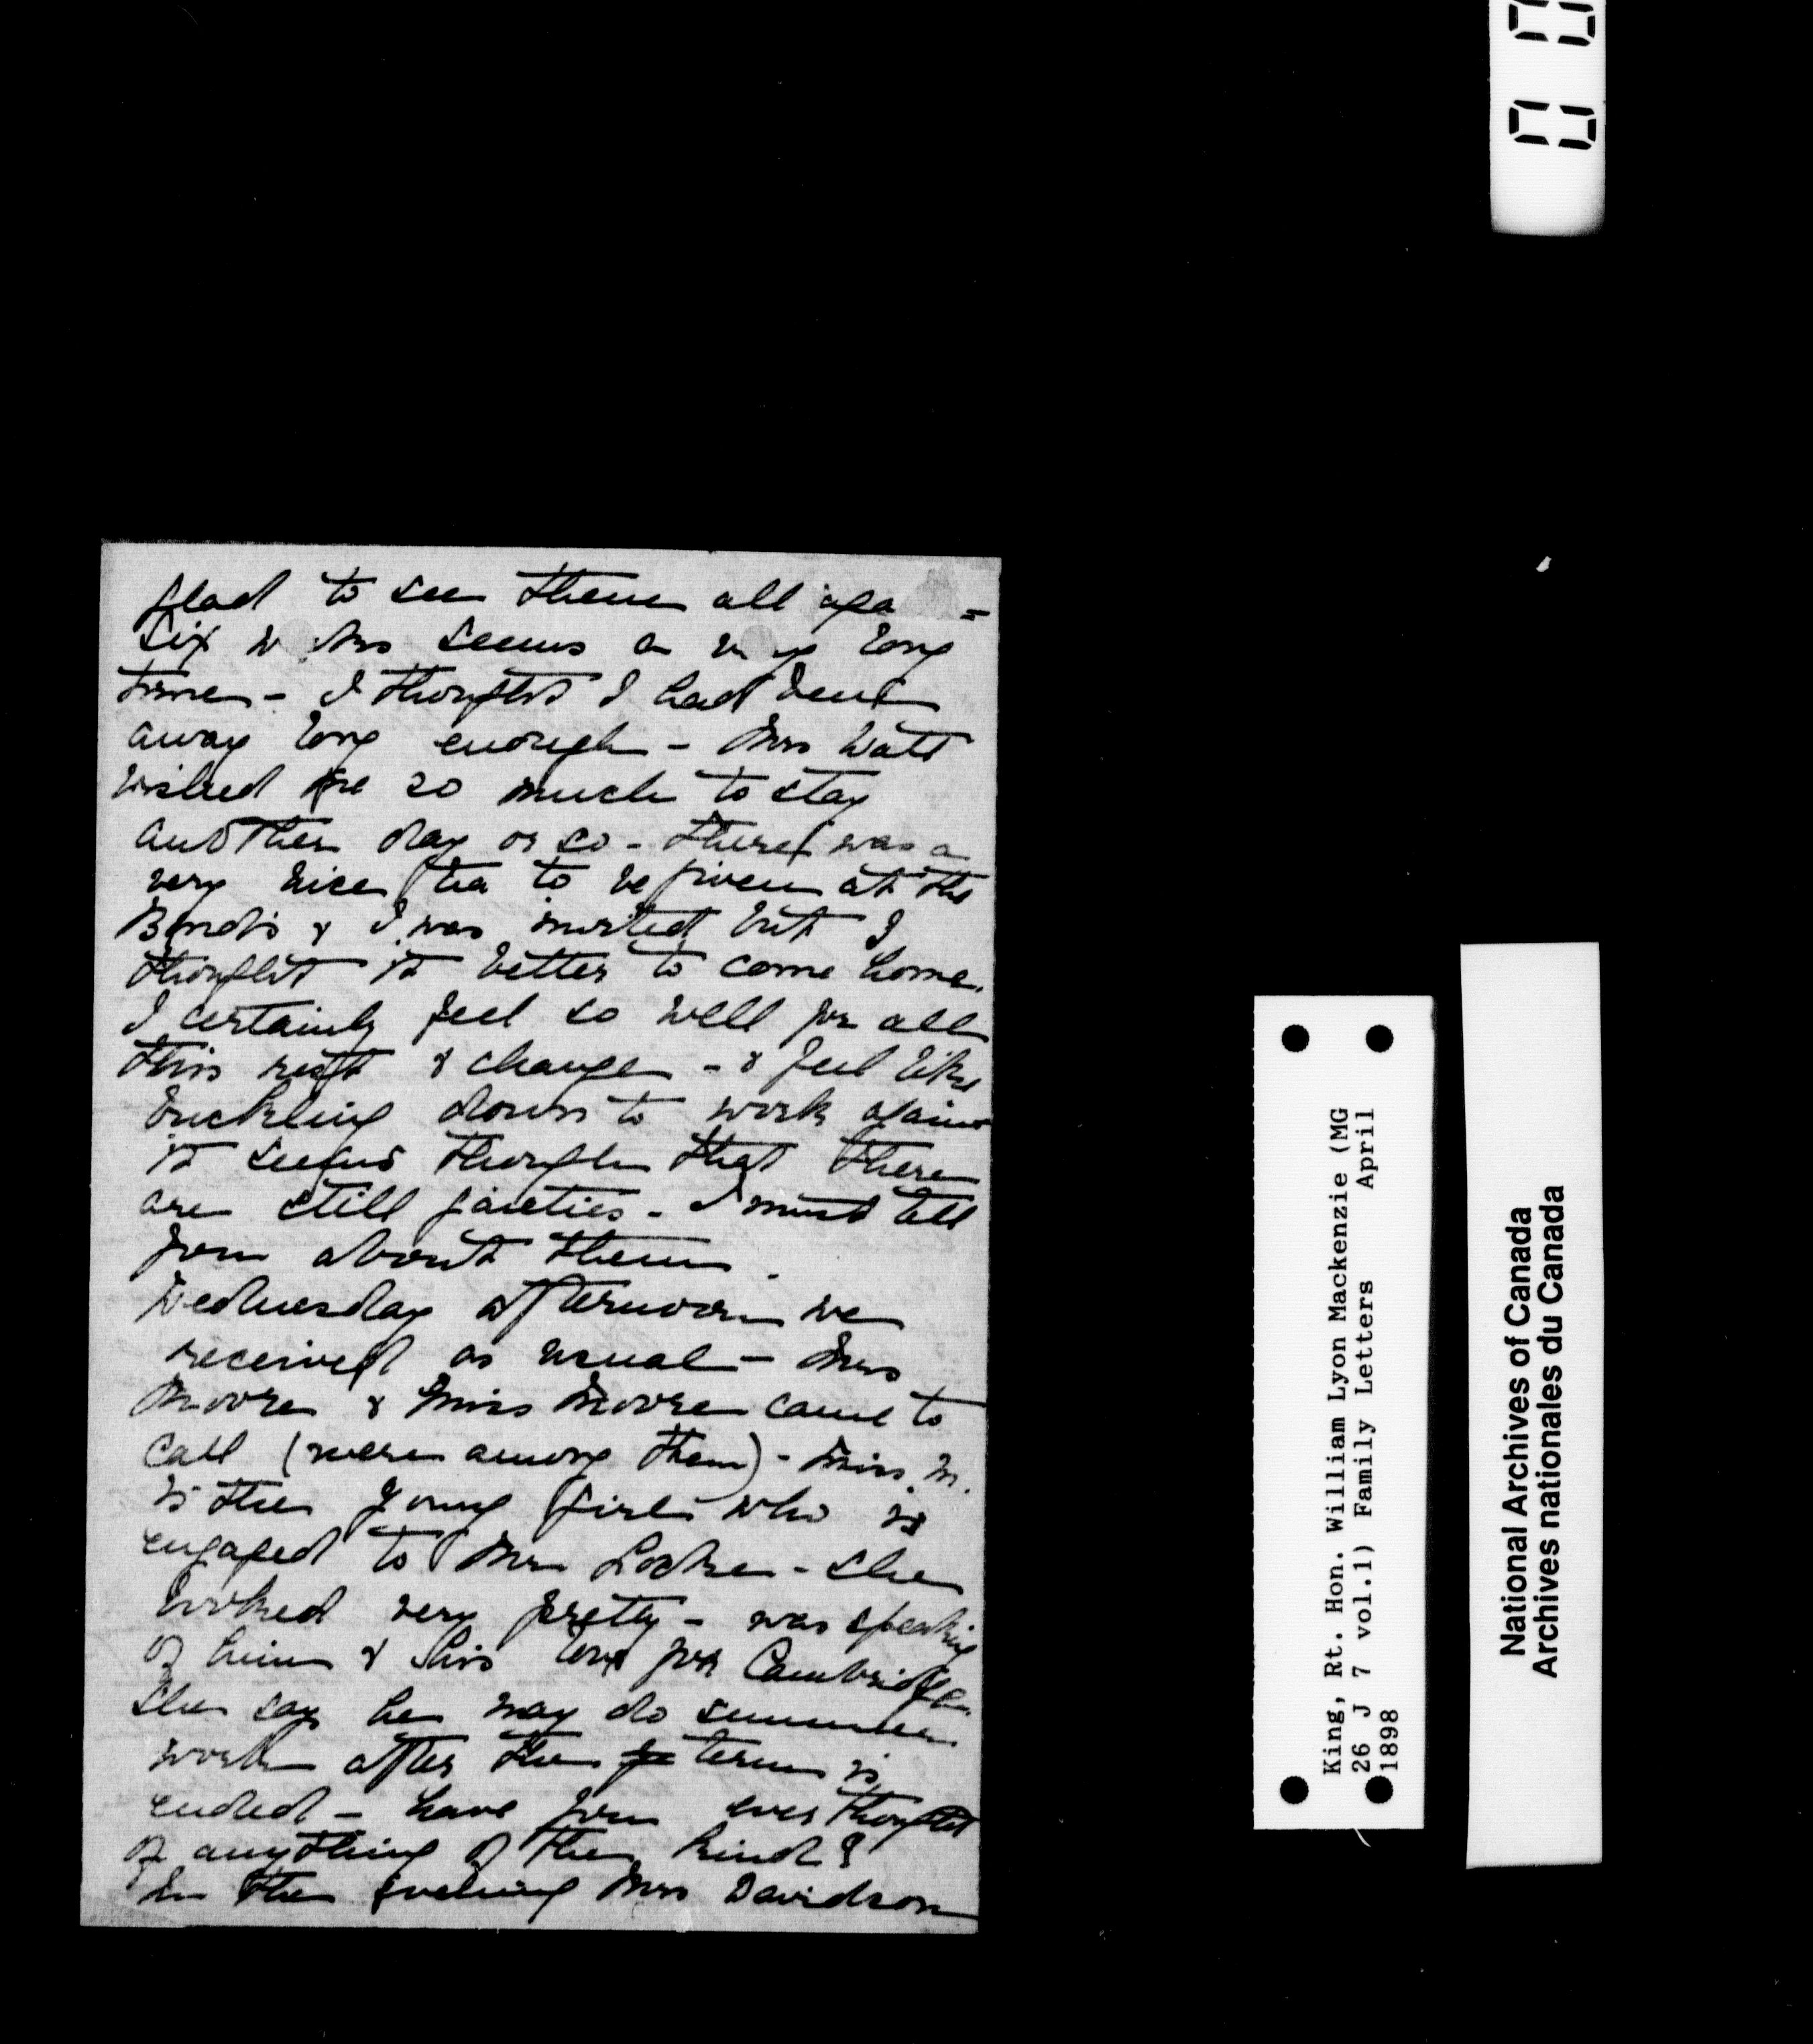 glad to see them all aga =
Six w ks seems a v y long
time - I thought I had been
away long enough - Mrs Watt
wished me so much to stay
another day or so - there was a
very nice tea to be given at the
& I was invited but I
thought it better to come home.
I certainly feel so well for all
this rest & change - & feel like
buckling down to work again
it seems though that there
are still gaieties - I must tell
you about them.
Wednesday afternoon we
received as usual - Mrs
Moore & Miss Moore came to
call (were among them) - Miss M.
is the young girl who is
engaged to Mr Locke - she
looked very pretty - was speaking
of him & his love for Cambridge.
She say he may do summer
work after the term is
ended - have you ever thought
of anything of the kind?
In the evening Mrs Davidson
King, Rt. Hon. William Lyon Mackenzie (MG
26 J 7 vol.1) Family Letters April
1898
National Archives of Canada
Archives nationales du Canada